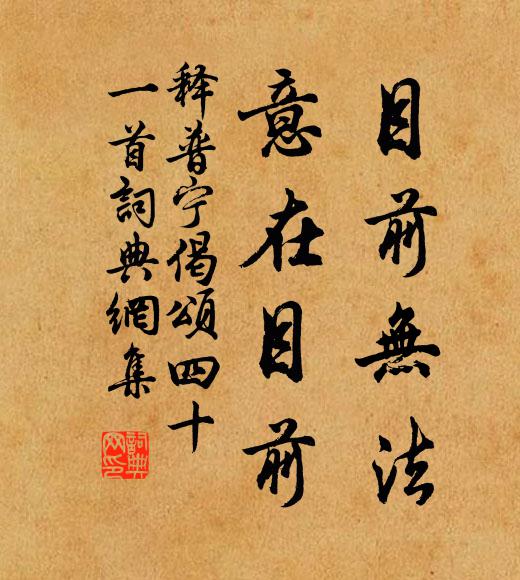 目前無法
意在目前
释普宁偈頌四十
一首詞典網集
詞典
网印